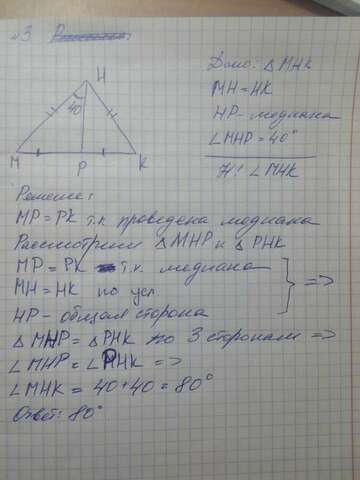 №3
H
40
M
P
K
Дано: △MHK
MH=HK
HP- медиана
∠MHP=40°
Н! ∠MHK
Решение:
MP=PK т.к. проведена медиана
Рассмотрим △MHP и △PHK
MP=PK т.к. медиана
MH=HK по усл.
HP- общая сторона
=>
△MHP=△PHK по 3 сторонам =>
∠MHP=∠PHK =>
∠MHK=40+40=80°
Ответ: 80°